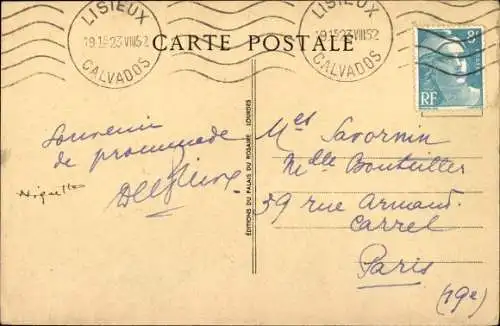 LISIEUX
19 15 23 VIII 52
CALVADOS
CARTE POSTALE
LISIEUX
19 15 23 VIII 52
CALVADOS
8F
RF
Souvenir
de promenade
ÉDITIONS DU PALAIS DU ROSAIRE LOURDES
Mes Savornin
Mlle Bouteiller
39 rue Armand
Carrel
Paris
(19e)